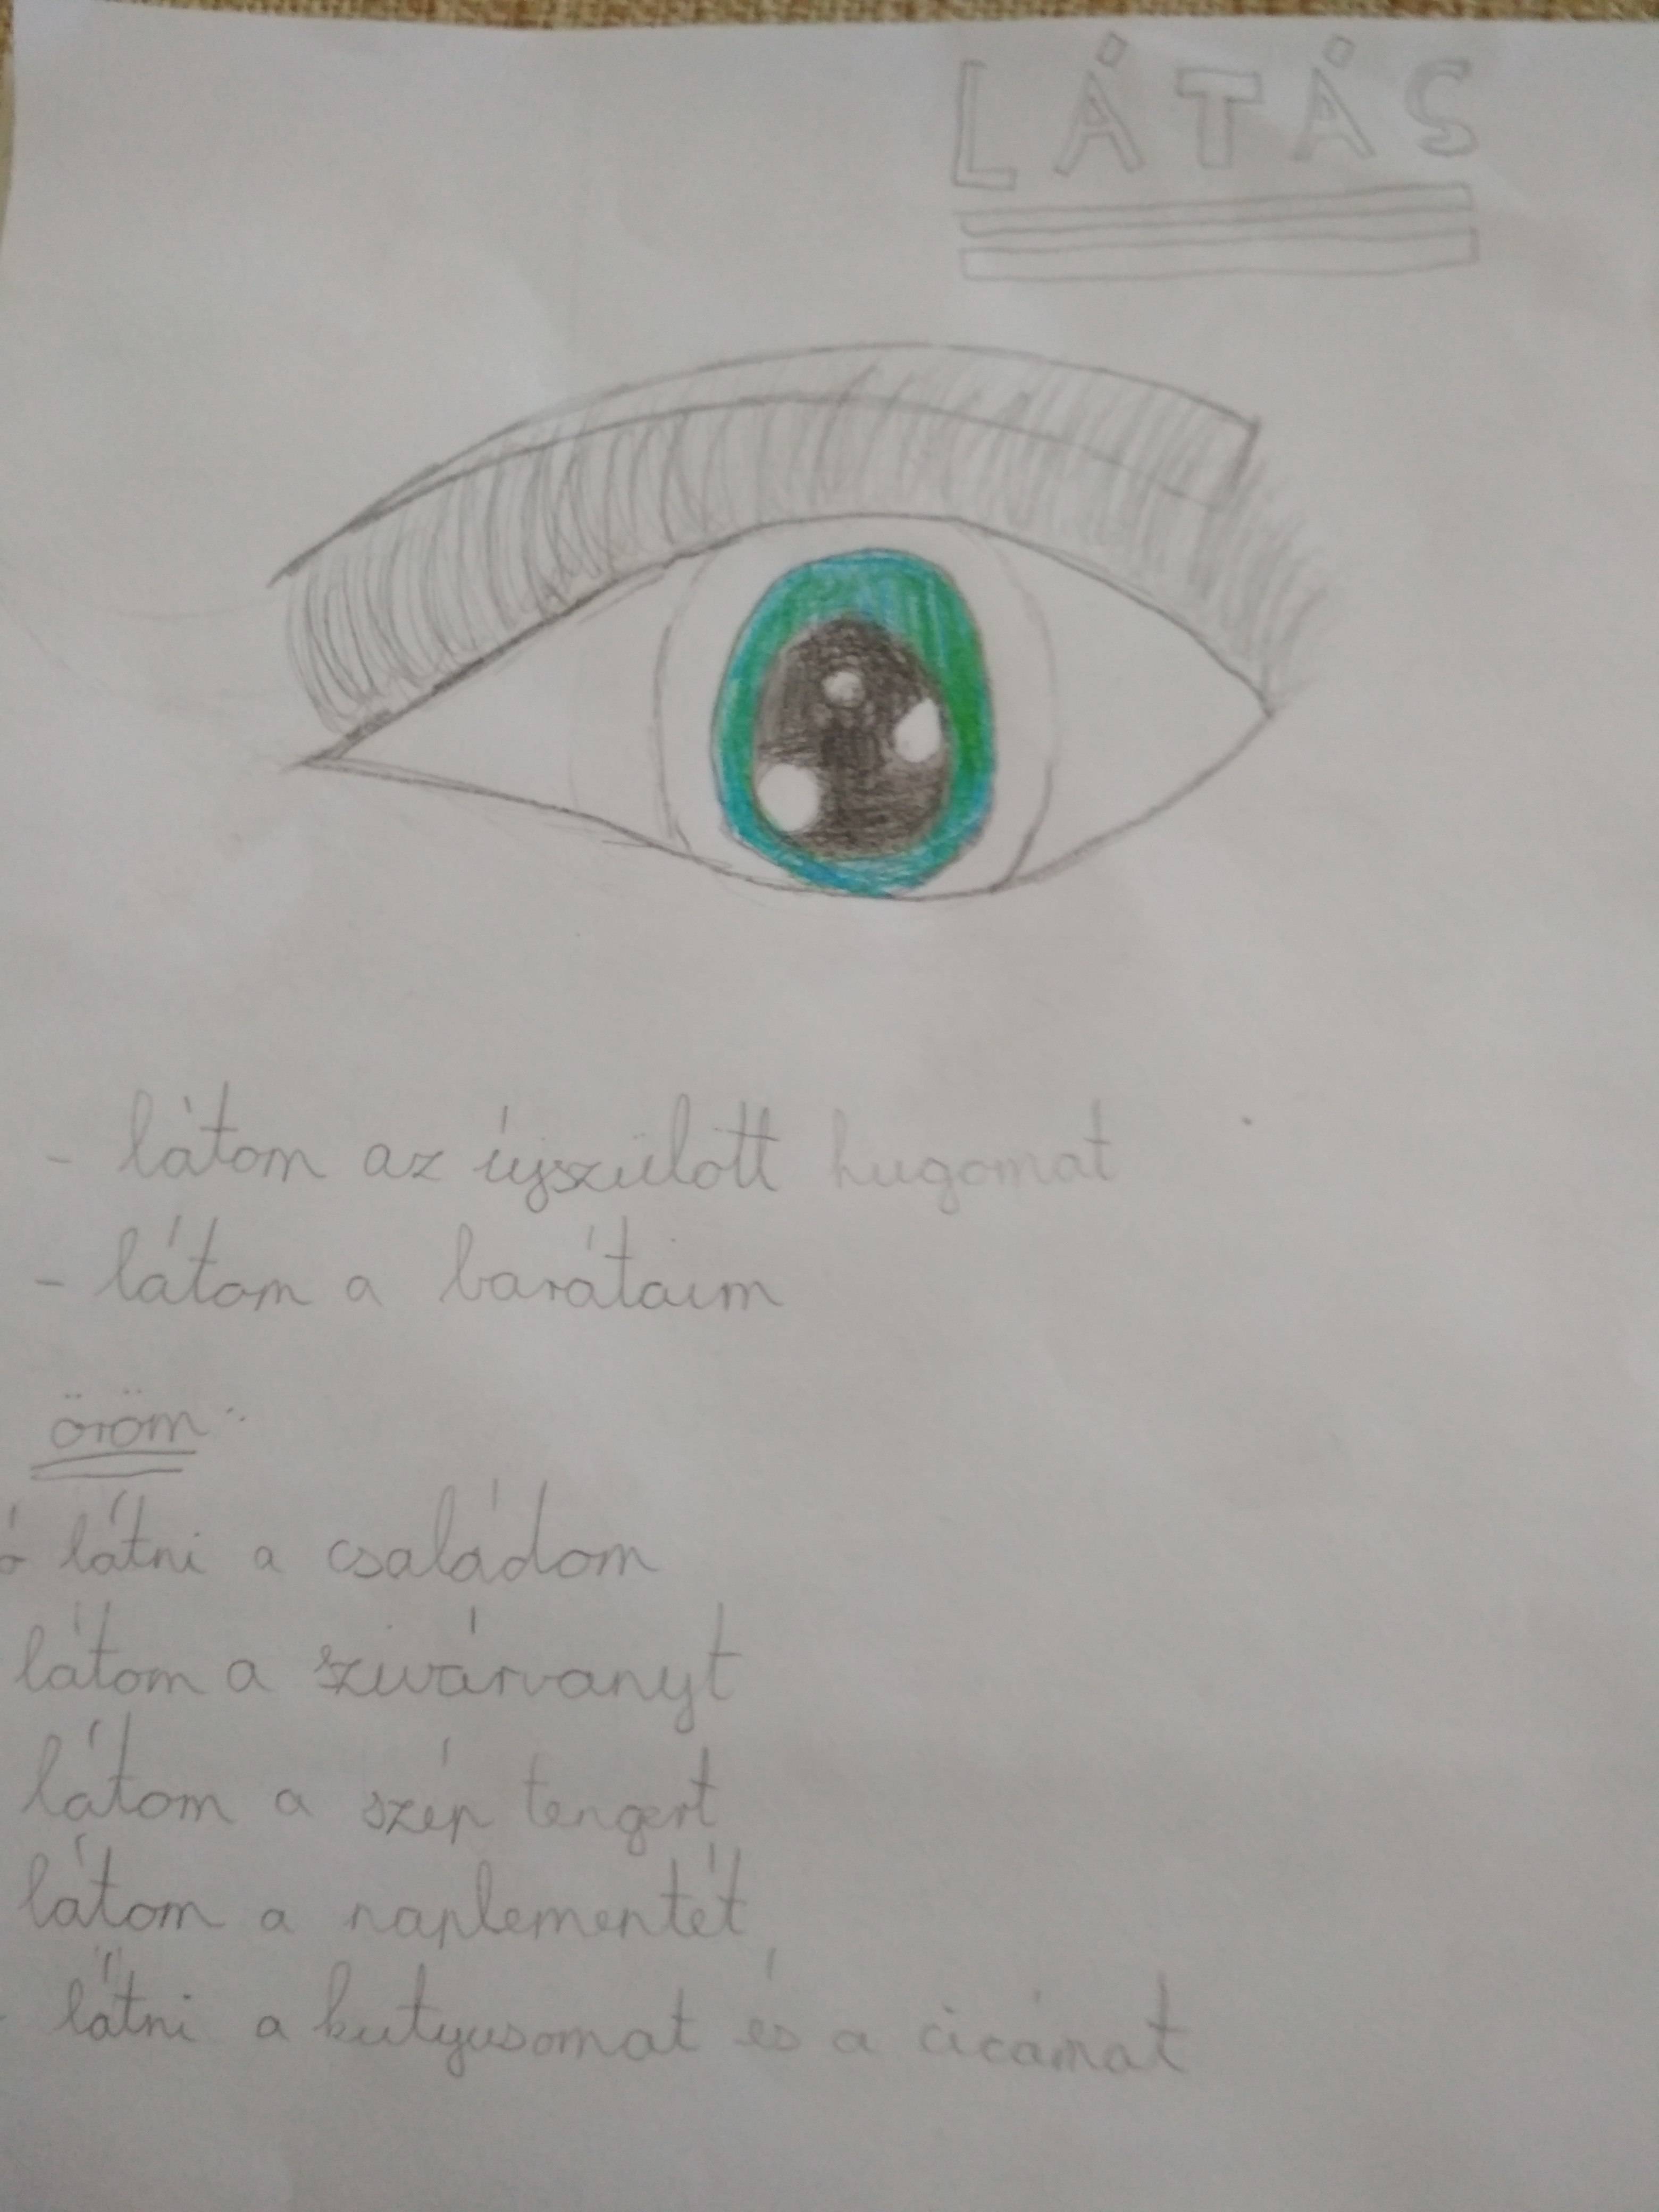 LÁTÁS
- látom az újszülött hugomat
- látom a barátaim
öröm:
ó látni a családom
látom a szivárványt
látom a szép tengert
látom a naplementét
- látni a kutyusomat és a cicámat